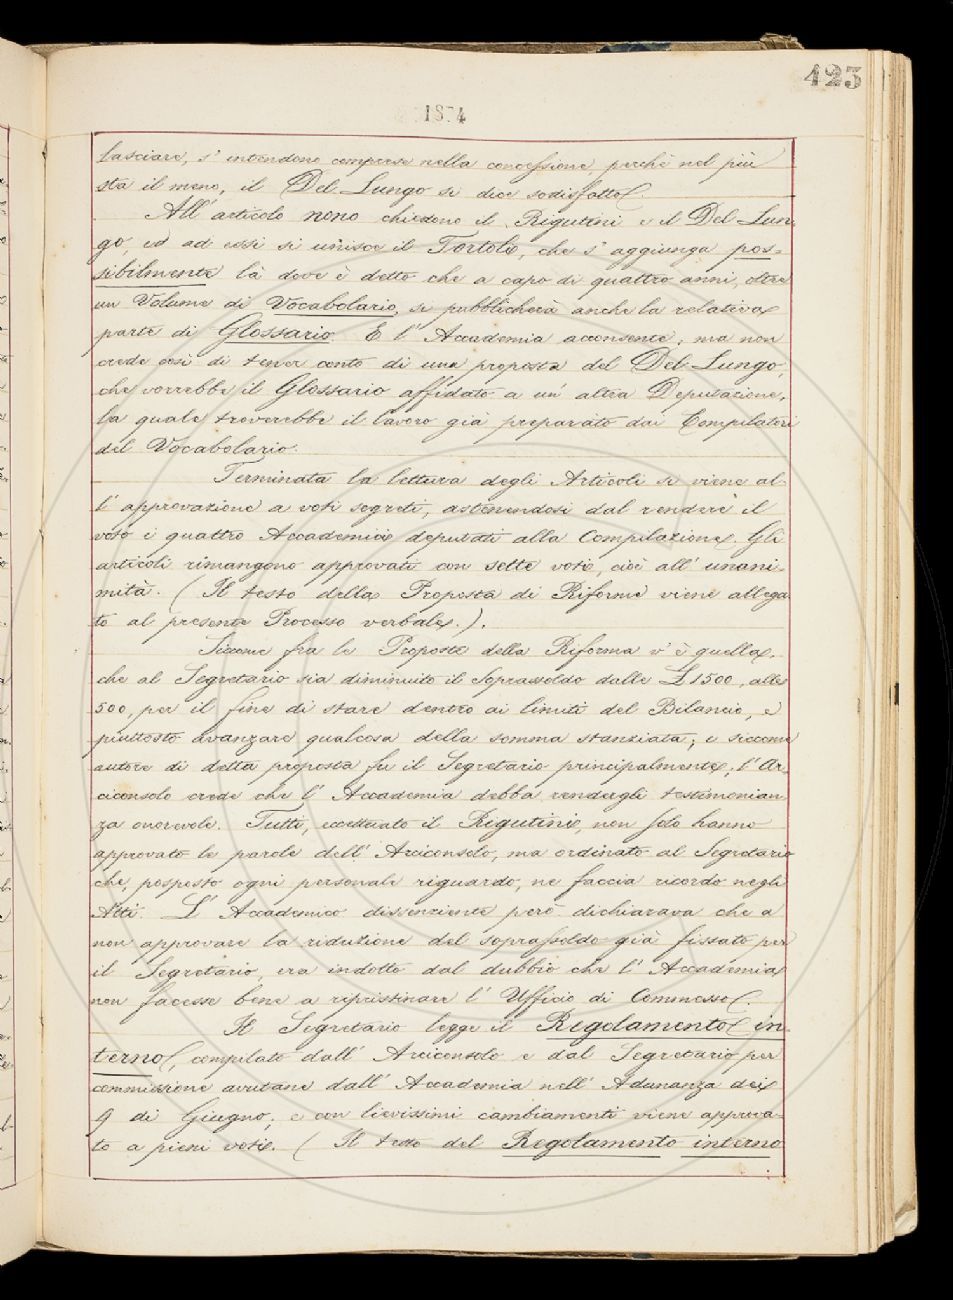 423
1874
lasciare, s' intendono comprese nella concessione, perchè nel più
sta il meno, il Del Lungo si dice sodisfatto.
All' articolo nono chiedono il Rigutini e il Del Lun-
go, ed ad essi si unisce il Tortoli, che s' aggiunga pos-
sibilmente là dove è detto che a capo di quattro anni, oltre
un Volume di Vocabolario, si pubblicherà anche la relativa
parte di Glossario. E l' Accademia acconsente; ma non
crede così di tener conto di una proposta del Del-Lungo,
che vorrebbe il Glossario affidato a un' altra Deputazione,
la quale troverebbe il lavoro già preparato dai Compilatori
del Vocabolario.
Terminata la lettura degli Articoli si viene al-
l' approvazione a voti segreti, astenendosi dal rendere il
voto i quattro Accademici deputati alla Compilazione. Gli
articoli rimangono approvati con sette voti, cioè all' unani-
mità. (Il testo della Proposta di Riforme viene allega-
to al presente Processo verbale.).
Siccome fra le Proposte della Riforma v' è quella,
che al Segretario sia diminuito il soprassoldo dalle £ 1500, alle
500, per il fine di stare dentro ai limiti del Bilancio, e
piuttosto avanzare qualcosa della somma stanziata; e siccome
autore di detta proposta fu il Segretario principalmente; l' Ar-
ciconsolo crede che l' Accademia debba rendergli testimonian-
za onorevole. Tutti, eccettuato il Rigutini, non solo hanno
approvato le parole dell' Arciconsolo, ma ordinato al Segretario
che, posposto ogni personale riguardo, ne faccia ricordo negli
Atti. L' Accademico dissenziente però dichiarava che a
non approvare la riduzione del soprassoldo già fissato per
il Segretario, era indotto dal dubbio che l' Accademia
non facesse bene a ripristinare l' Ufficio di Commesso.
Il Segretario legge il Regolamento in-
terno, compilato dall' Arciconsolo e dal Segretario per
commissione avutane dall' Accademia nell' Adunanza dei
9 di Giugno; e con lievissimi cambiamenti viene approva-
to a pieni voti. (Il testo del Regolamento interno